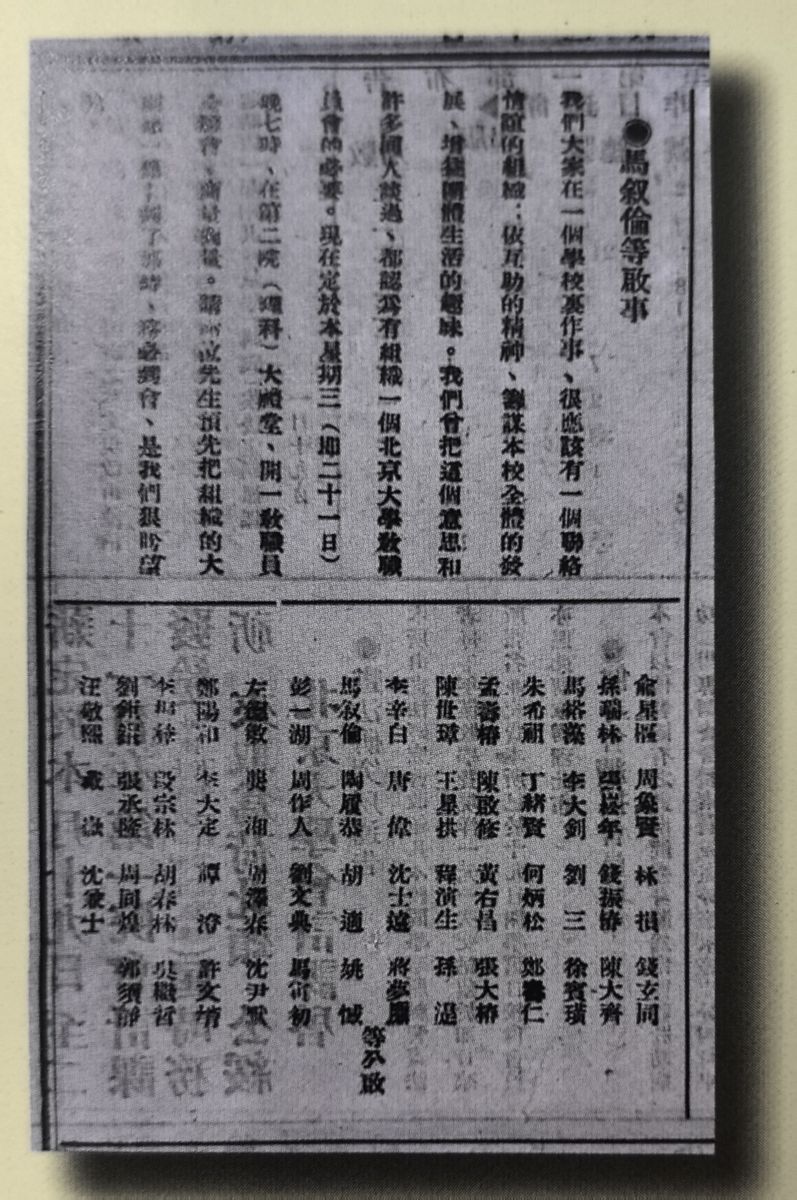 ●馬叙倫等啟事
我們大家在一個學校裏作事、很應該有一個聯絡
情誼的組織：依互助的精神、籌謀本校全體的發
展、增進團體生活的趣味。我們曾把這個意思和
許多同人談過、都認為有組織一個北京大學教職
員會的必要。現在定於本星期三（卽二十一日）
晚七時、在第二院（理科）大禮堂、開一教職員
會、商量商量。請諸位先生預先把組織的大
一想；到了那時、務必到會、是我們狠盼望
的。
俞星樞 周象賢 林損 錢玄同
孫瑞林 張崧年 錢振椿 陳大齊
馬裕藻 李大釗 劉三 徐寶璜
朱希祖 丁緒賢 何炳松 鄭壽仁
孟壽椿 陳啟修 黃右昌 張大椿
陳世璋 王星拱 程演生 孫湜
李辛白 唐偉 沈士遠 蔣夢麟
馬叙倫 陶履恭 胡適 姚憾
彭一湖 周作人 劉文典 馬寅初
左德敏 龔湘 周澤春 沈尹默
鄭陽和 李大定 譚澄 許文靖
段宗林 胡春林 吳繼哲
張承隆 周同煌 郭須靜
汪敬熙 沈兼士
等公啟